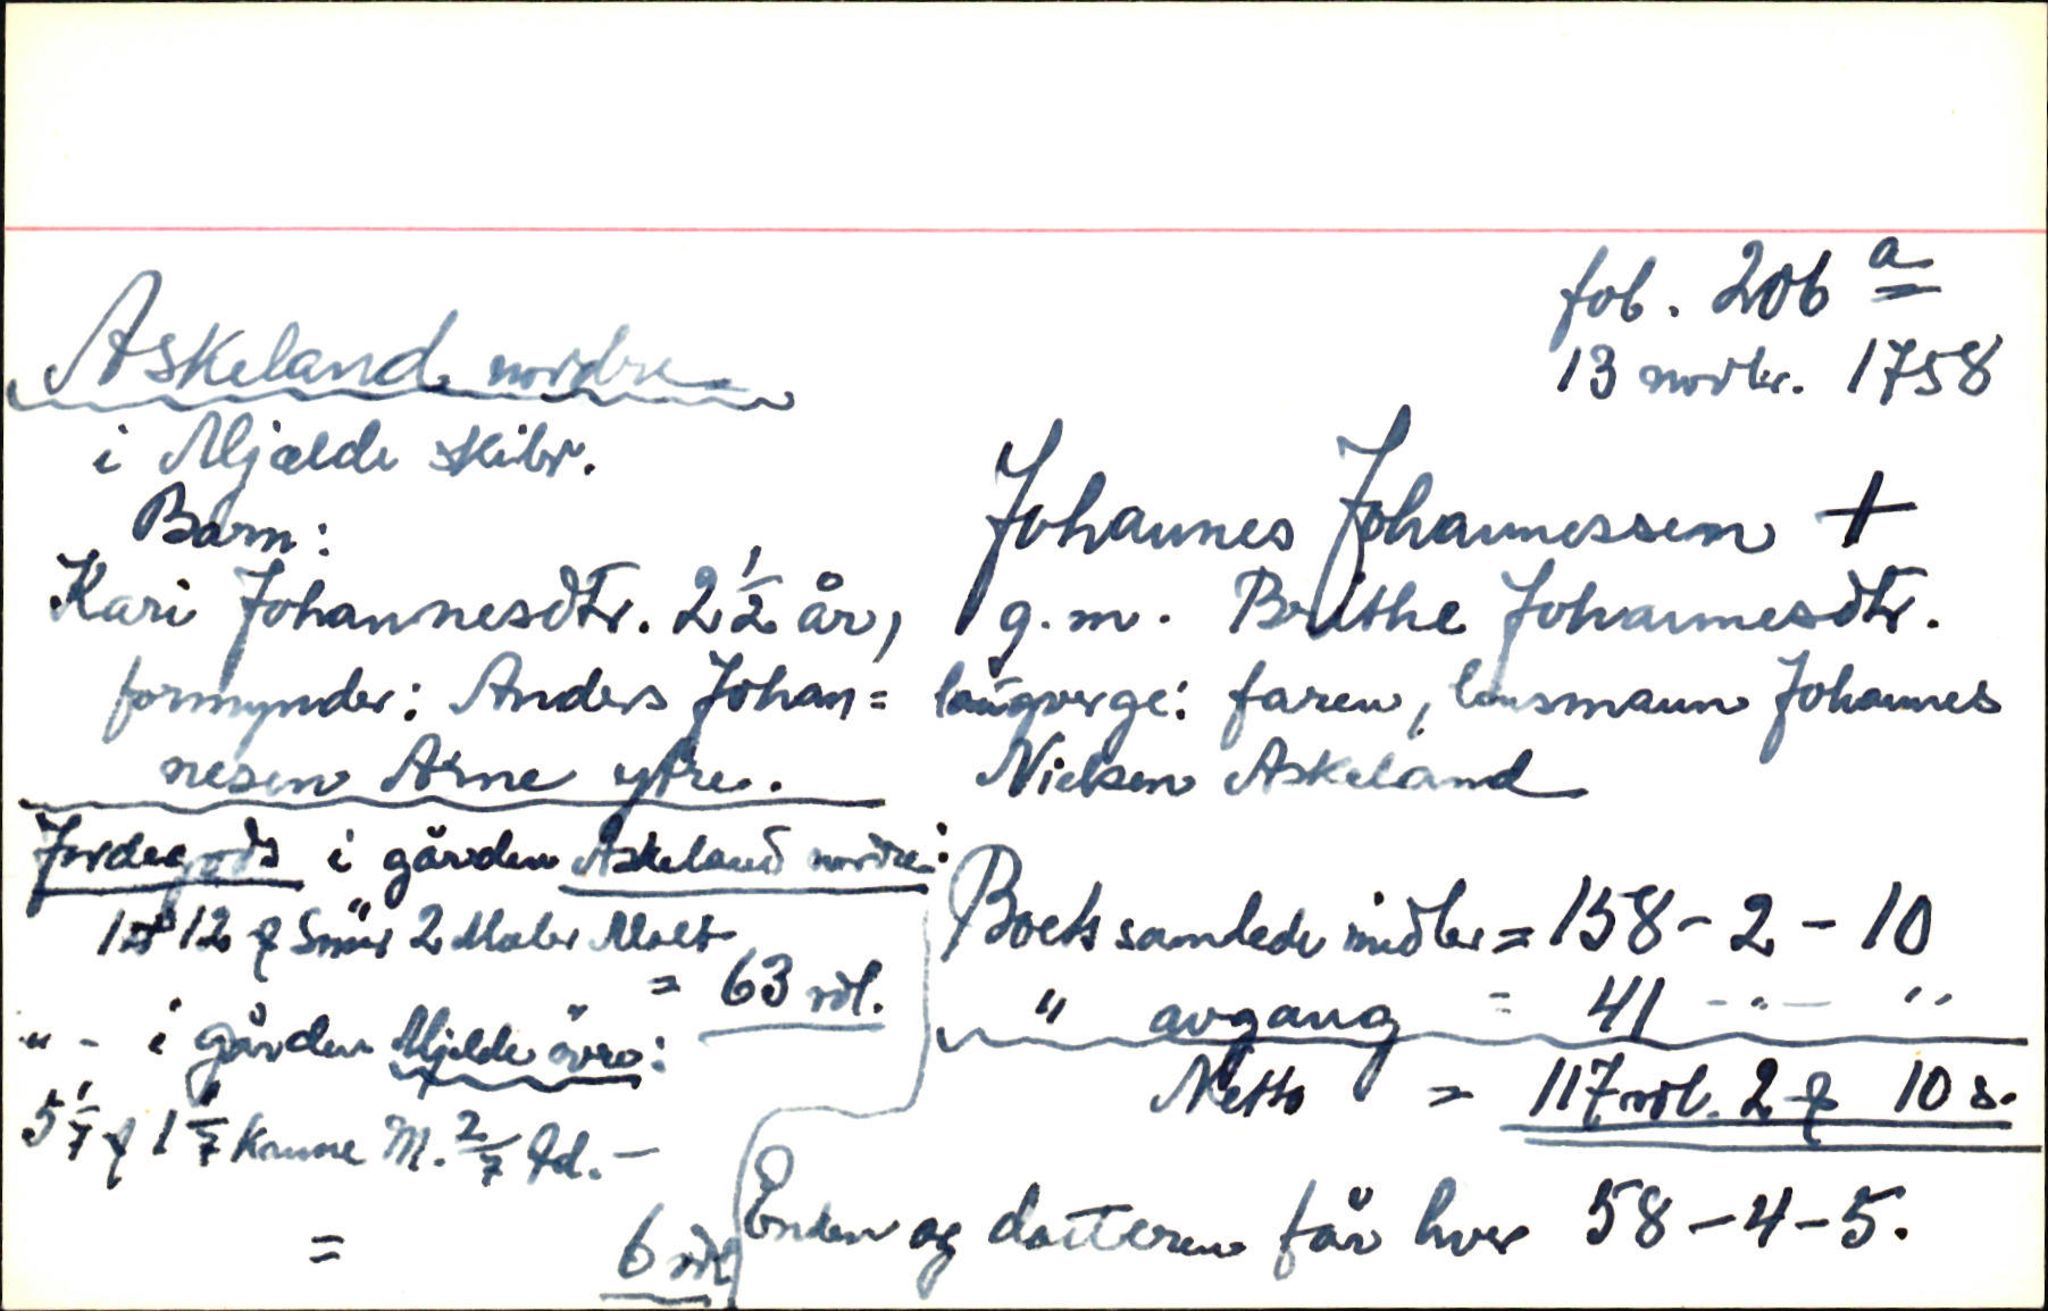 fol. 206 a
13 novbr. 1758
Askeland nordre
i Mjelde skibr.
Barn:
Kari Johannesdtr. 2 1/2 år,
formynder: Anders Johan=
nesen Arne ytre.
Johannes Johannessen +
g. m. Brithe Johannesdtr.
laugverge: faren, lensmann Johannes
Nielsen Askeland
Jordegods i gården Askeland nordre:
12 Smør 2 Mæler Malt
= 63 rdl.
" - i gården Mjelde øvre:
5 1/7 1 1/7 Kanne M. 2/7 hd. -
= 6 rdl
Boets samlede midler = 158 - 2 - 10
" avgang = 41 - " - "
Netto = 117 rdl. 2 10 s.
Enken og datteren får hver 58 - 4 - 5.